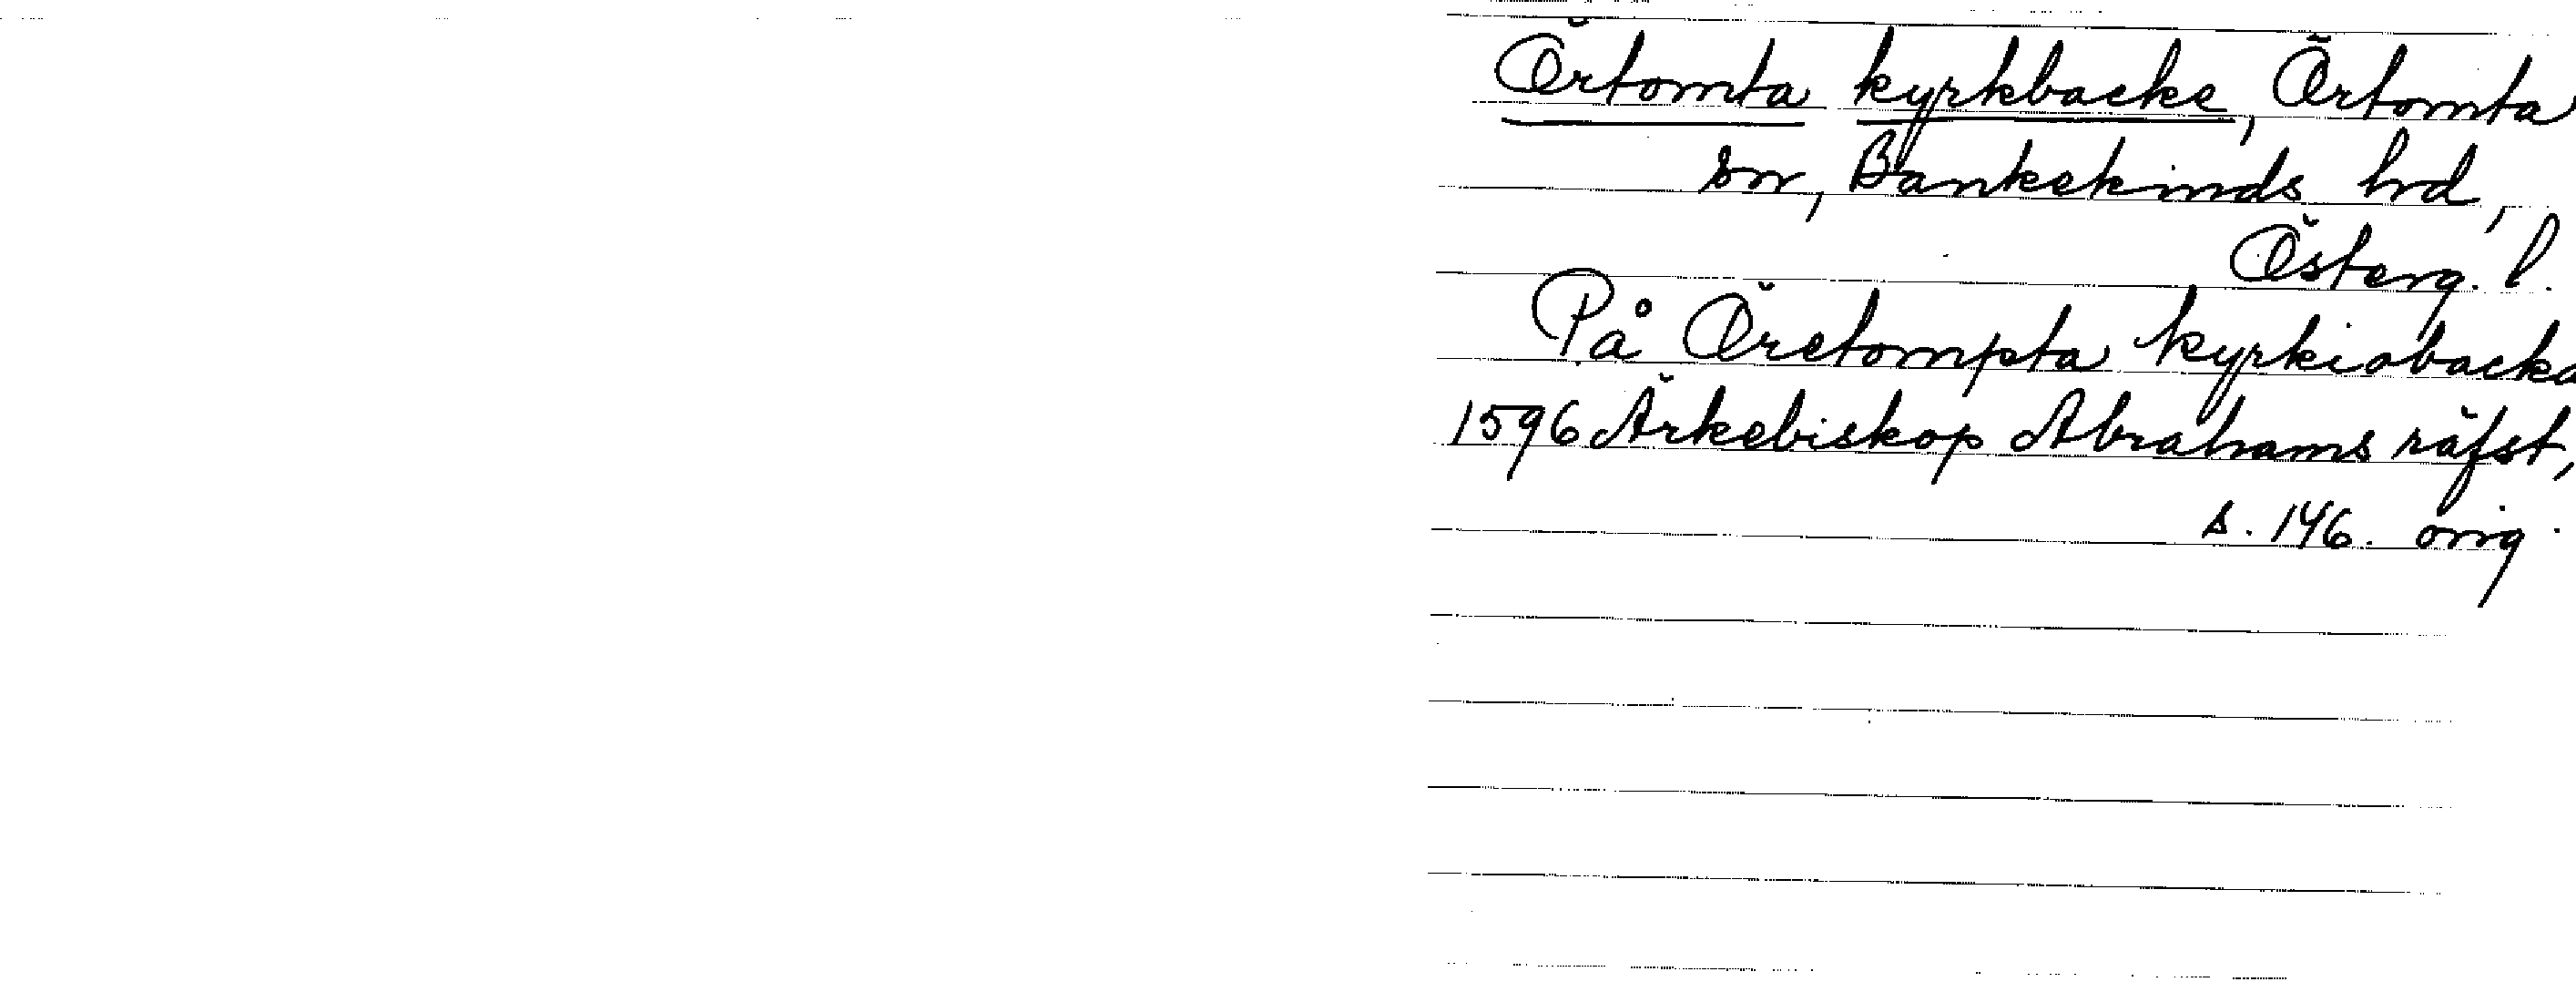 Örtomta kyrkbacke, Örtomta
sn, Bankekinds hd,
Österg. l.
På Öretompta kyrkiobacka
1596 Ärkebiskop Abrahams räfst,
s. 146. orig.